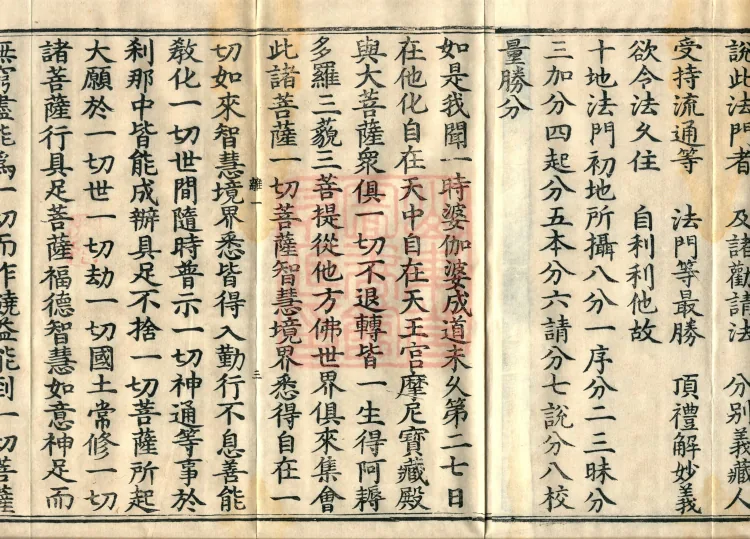 說此法門者 及諸勸請法 分別義藏人
受持流通等 法門等最勝 頂禮解妙義
欲令法久住 自利利他故
十地法門初地所攝八分一序分二三昧分
三加分四起分五本分六請分七說分八校
量勝分
如是我聞一時婆伽婆成道未久第二七日
在他化自在天中自在天王宮摩尼寶藏殿
與大菩薩衆俱一切不退轉皆一生得阿耨
多羅三藐三菩提從他方佛世界俱來集會
此諸菩薩一切菩薩智慧境界悉得自在一
一 三
切如來智慧境界悉皆得入勤行不息善能
教化一切世間隨時普示一切神通等事於
刹那中皆能成辦具足不捨一切菩薩所起
大願於一切世一切劫一切國土常修一切
諸菩薩行具足菩薩福德智慧如意神足而
無窮盡能爲一切而作饒益能到一切菩薩